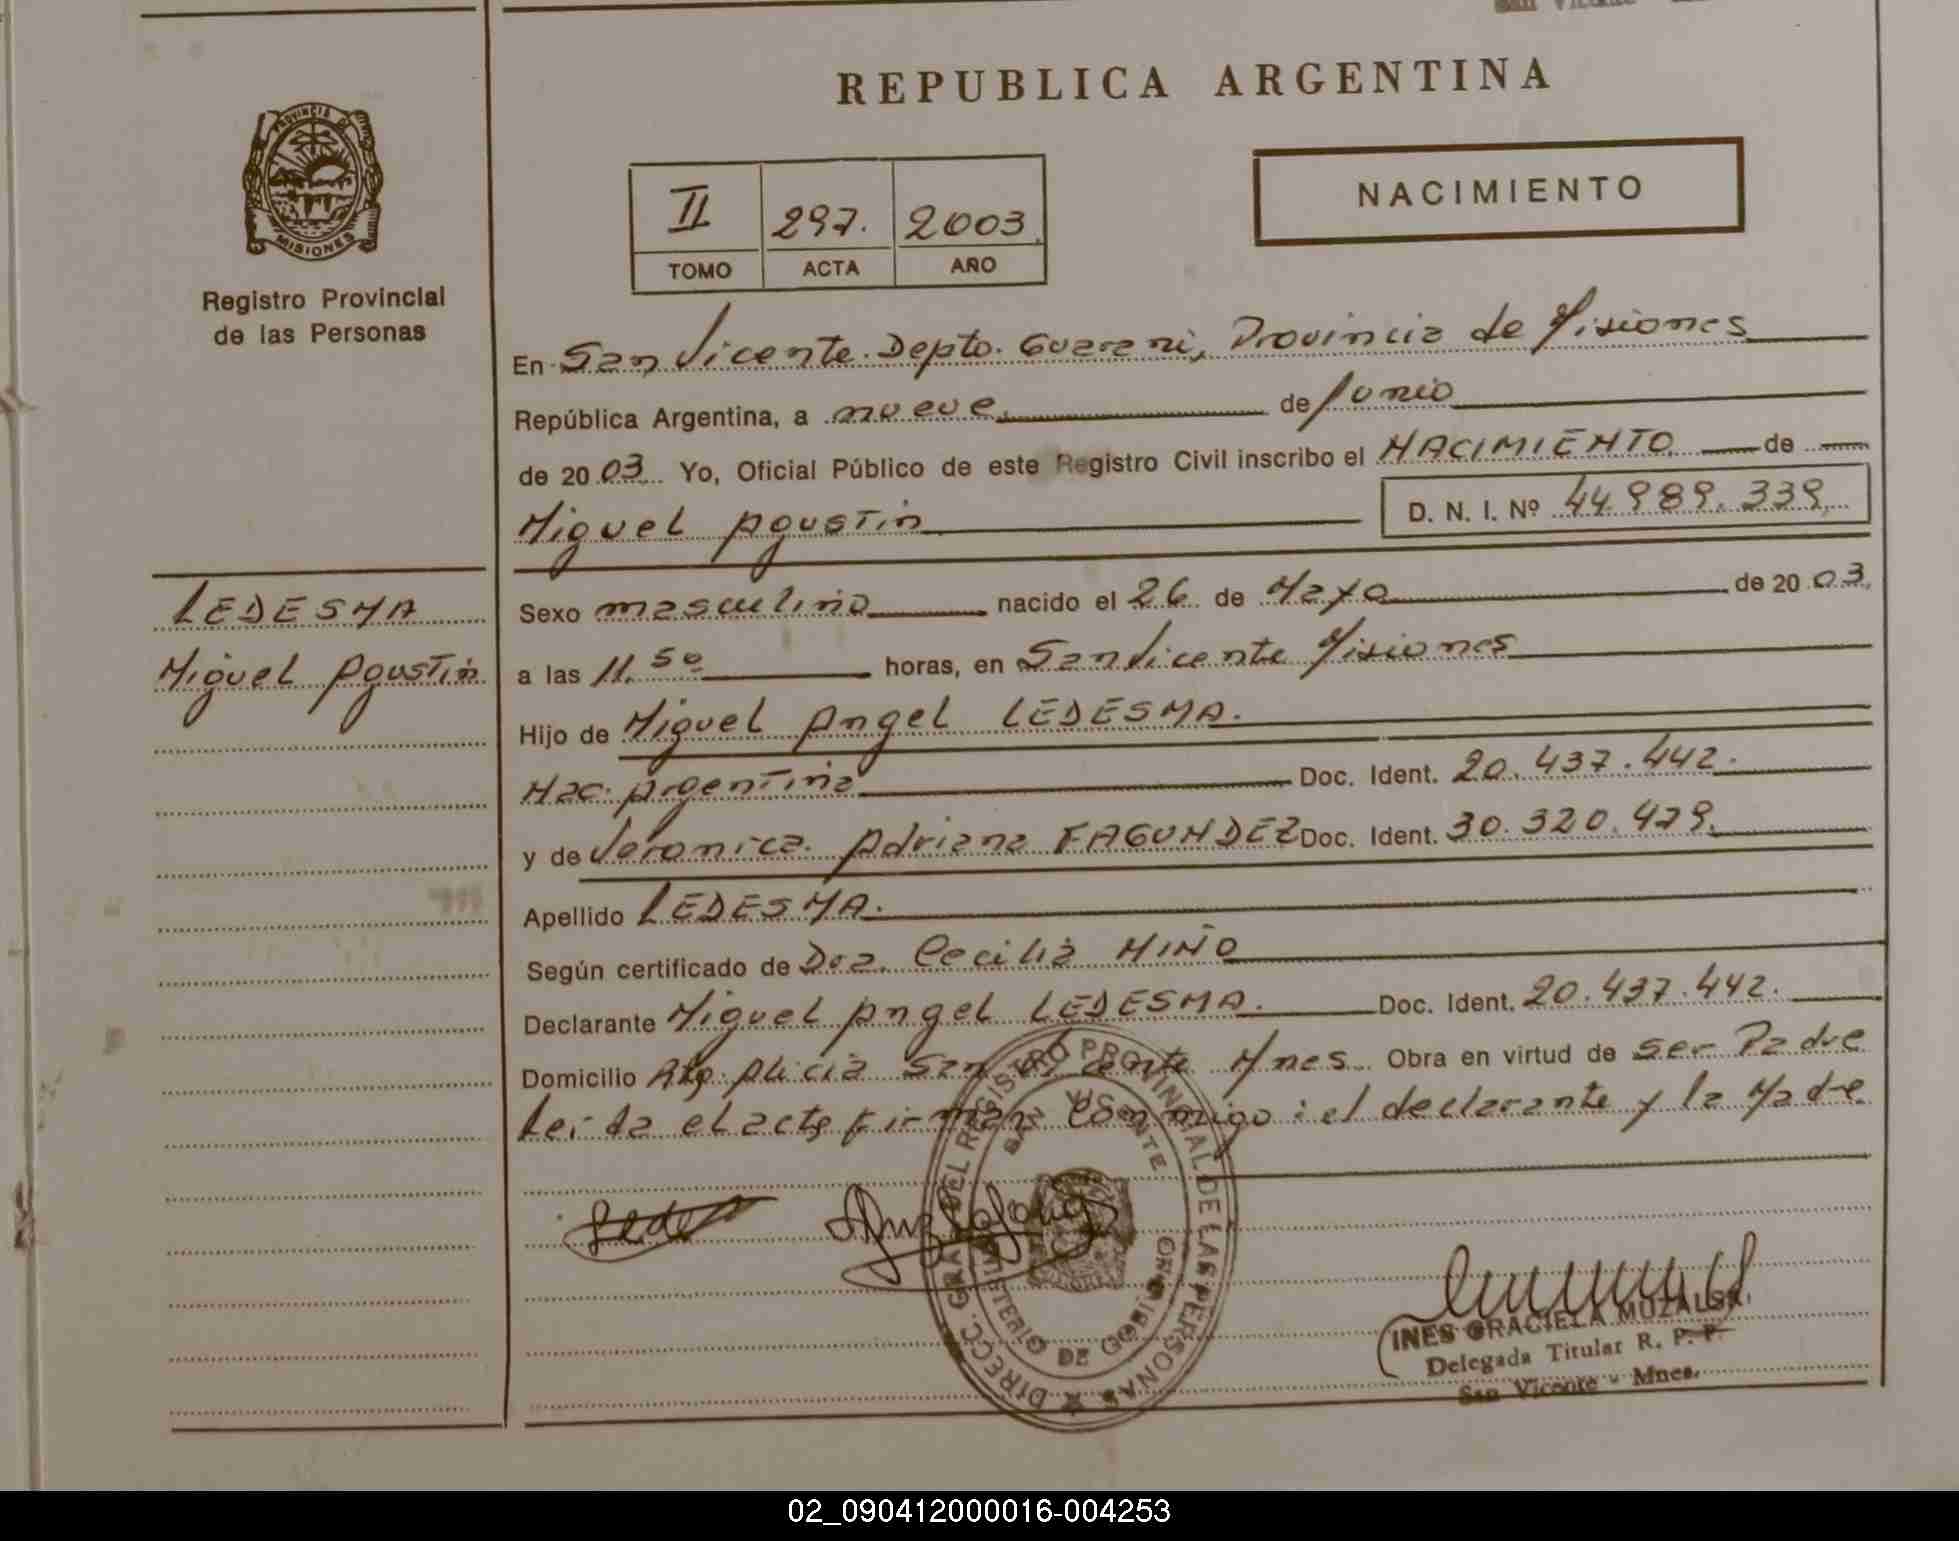 REPUBLICA ARGENTINA
PROVINCIA DE
MISIONES
Registro Provincial
de las Personas
NACIMIENTO
II 297. 2003
TOMO ACTA AÑO
En San Vicente. Depto. Guarani, Provincia de Misiones
República Argentina, a nueve de Junio
de 2003 Yo, Oficial Público de este Registro Civil inscribo el NACIMIENTO de
Miguel Agustin D. N. I. Nº 44.989.339
LEDESMA
Miguel Agustin
Sexo masculino nacido el 26 de Mayo de 2003
a las 11.50 horas, en San Vicente Misiones
Hijo de Miguel Angel LEDESMA.
Nac. Argentina Doc. Ident. 20.437.442.
y de Veronica Adriana FAGUNDEZ Doc. Ident. 30.320.479.
Apellido LEDESMA.
Según certificado de Dra. Cecilia MIÑO
Declarante Miguel Angel LEDESMA. Doc. Ident. 20.437.442.
Domicilio Alicia San Vicente Mnes. Obra en virtud de ser Padre
Leida el acta firman conmigo: el declarante y la Madre
DIRECC. GRAL. DEL REGISTRO PROVINCIAL DE LAS PERSONAS
SAN VICENTE
MINISTERIO DE GOBIERNO
INES GRACIELA MUZALSKI
Delegada Titular R. P. P.
San Vicente - Mnes.
02_090412000016-004253